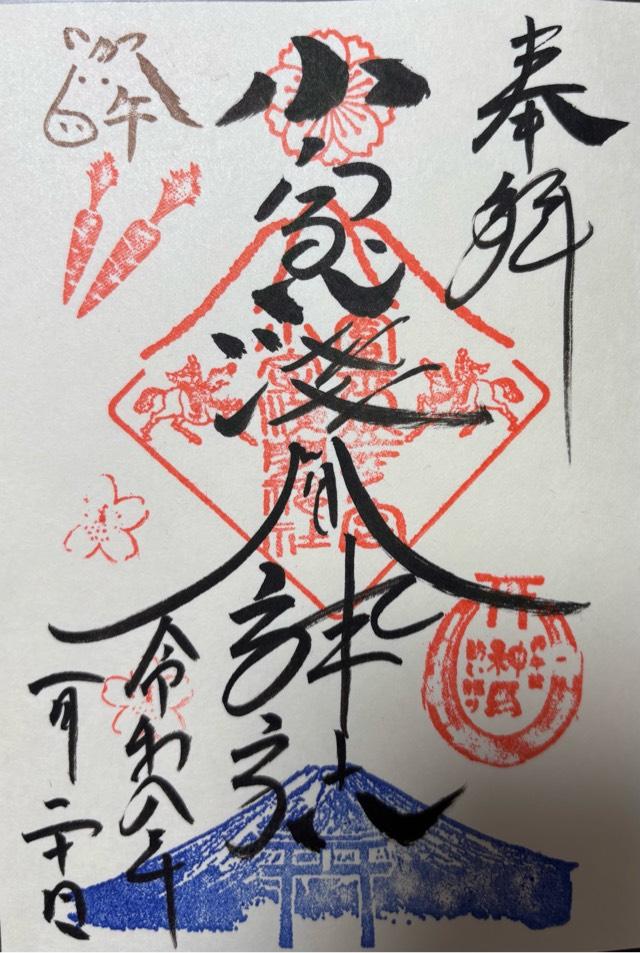 奉拝
小室浅間神社
令和八年
一月二十日
午
神馬